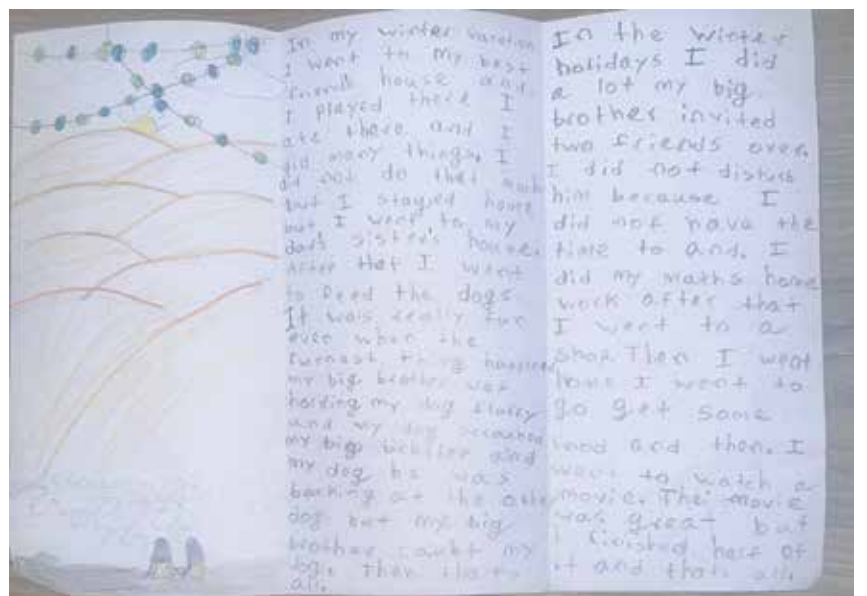 In my winter vacation
I went to my best
friend's house and.
I played there I
ate there and I
did many things. I
did not do that much
but I stayed home
but I went to my
dad's sister's house.
After that I went
to feed the dogs
It was really fun
even when the
funnest thing happened
my big brother was
holding my dog fluffy
and my dog
my big brother and
my dog he was
barking at the other
dog but my big
brother caubt my
dog. Then thats
all.
In the winter
holidays I did
a lot my big
brother invited
two friends over.
I did not disturb
him because I
did not have the
time to and. I
did my maths home
work after that
I went to a
shop. Then I went
home I went to
go get some
food and then. I
went to watch a
movie. The movie
was great but
I finished half of
it and thats all.